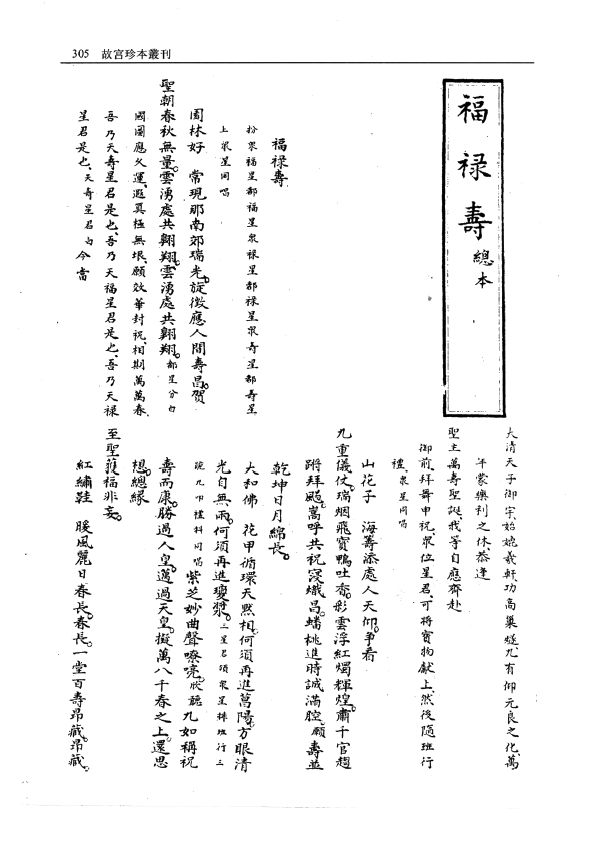 305 故宮珍本叢刊
福祿壽總本
福祿壽
扮衆福星都福星衆祿星都祿星衆壽星都壽星
上衆星同唱
園林好 常現那南郊瑞光。旋徵應人間壽昌。賀
聖朝春秋無量。雲湧處共翺翔。雲湧處共翺翔。都星分白
國圖應久運、遐真極無垠、願效華封祝、相期萬萬春、
吾乃天壽星君是也、吾乃天福星君是也、吾乃天祿
星君是也、天壽星君白 今當
大清天子御宗、始嬀羲軒、功高巢燧、九有仰元良之化、萬
年蒙樂利之休、恭逢
聖主萬壽聖誕、我等自應齊赴
御前拜舞申祝、衆位星君、可將寶物獻上、然後隨班行
禮、衆星同唱
山花子 海籌添處人天仰。爭看
九重儀仗。瑞烟飛寶鴨吐香。彩雲浮紅燭輝煌。肅千官趨
蹌拜颺。嵩呼共祝寖熾昌。蟠桃進時誠滿腔。願壽並
乾坤日月綿長。
大和佛 花甲循環天黙相。何須再進菖陽。方眼清
光自無兩。何須再進瓊漿。三星名項衆星捧班行三
跪九叩禮科同唱 紫芝妙曲聲嘹喨。欣聽九如稱祝
壽而康。勝過人皇。邁過天皇。擬萬八千春之上。還思
想。總緣
至聖蓰福非妄。
紅繡鞋 暖風麗日春長。春長。一堂百壽昂藏。昂藏。